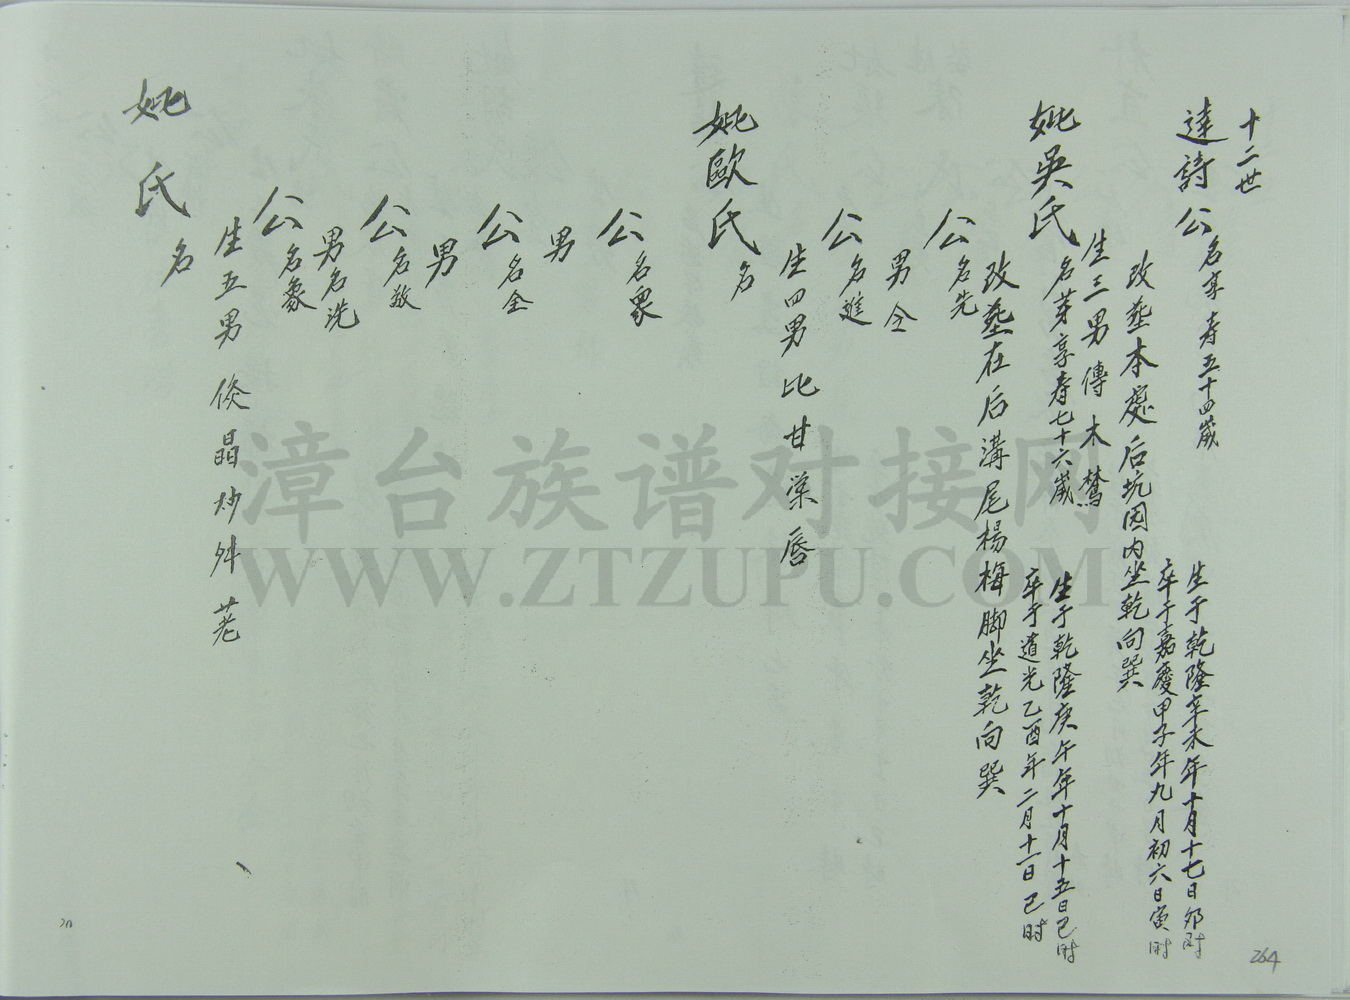 十二世
達詩公 名享 寿五十四歲
生于乾隆辛未年十月十七日卯时
卒于嘉慶甲子年九月初六日寅时
改葬本處后坑因内坐乾向巽
生三男 傳 木
妣吳氏 名芽 享寿七十六歲
生于乾隆庚午年十月十五日巳时
卒于道光乙酉年二月十一日巳时
改葬在后溝尾楊梅脚坐乾向巽
公 名先
男 仝
公 名進
生四男 比 甘 棠 唇
妣歐氏 名
公 名衆
男
公 名全
男
公 名敬
男名洗
公 名象
生五男 倐 晶 炒 舛 荖
妣 氏 名
264
漳台族谱对接网
WWW.ZTZUPU.COM